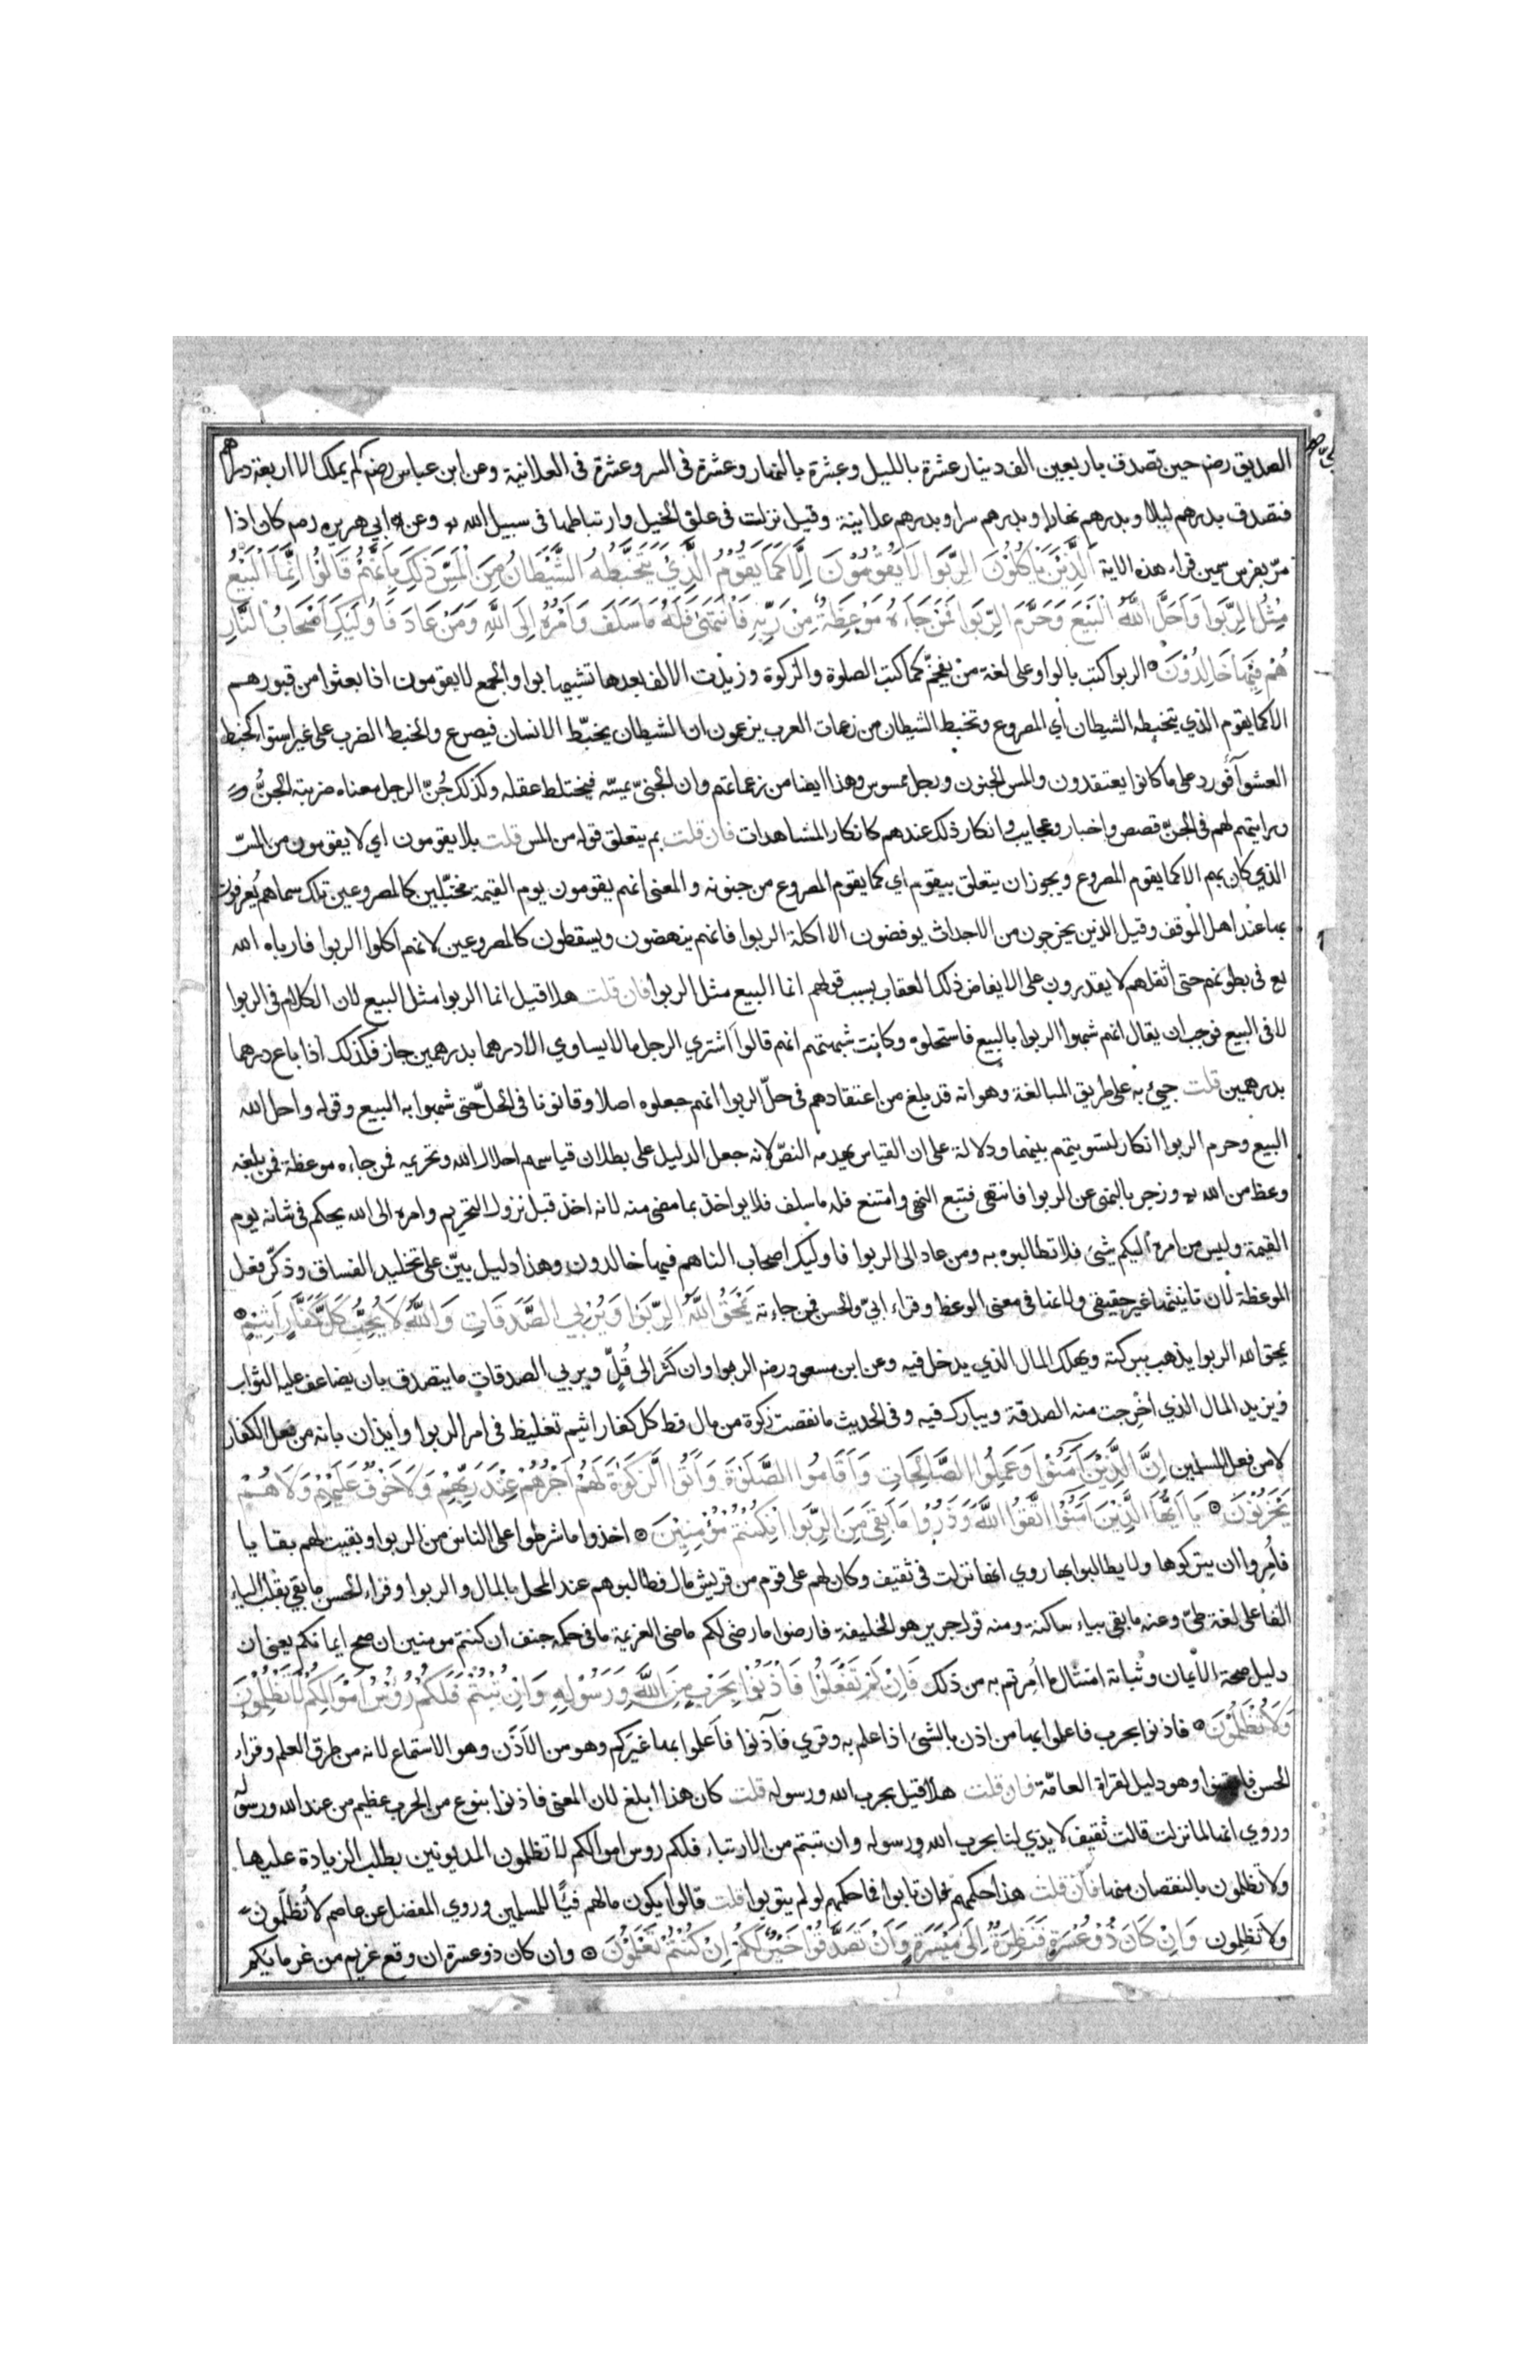 الصديق رضه حين تصدق باربعين الف دينار عشرة بالليل وعشرة بالنهار وعشرة فى السر وعشرة فى العلانية وعن ابن عباس رضه لم يملك الا اربعة دراهم
فتصدق بدرهم ليلا وبدرهم نهارا وبدرهم سرا وبدرهم علانية وقيل نزلت فى علق الخيل وارتباطها فى سبيل الله وعن ابي هريره رضه كان اذا
مرّ بفرس سمين قراء هذه الاية اَلَّذِيْنَ يَاْكُلُوْنَ الرِّبَوا لَا يَقُوْمُوْنَ اِلَّا كَمَا يَقُوْمُ الَّذِيْ يَتَخَبَّطُهُ الشَّيْطَانُ مِنَ الْمَسِّ ذَلِكَ بِاَنَّهُمْ قَالُوْا اِنَّمَا الْبَيْعُ
مِثْلُ الرِّبَوا وَاَحَلَّ اللَّهُ الْبَيْعَ وَحَرَّمَ الرِّبَوا فَمَنْ جَاءَهُ مَوْعِظَةٌ مِنْ رَبِّهِ فَانْتَهَى فَلَهُ مَا سَلَفَ وَاَمْرُهُ اِلَى اللَّهِ وَمَنْ عَادَ فَاُولَئِكَ اَصْحَابُ النَّارِ
هُمْ فِيْهَا خَالِدُوْنَ الربوا كتب بالواو على لغة من يفخّم كما كتب الصلوة والزكوة وزيدت الالف بعدها تشبيها بواو الجمع لا يقومون اذا بعثوا من قبورهم
الا كما يقوم الذي يتخبطه الشيطان أي المصروع وتخبط الشيطان من زعمات العرب يزعمون ان الشيطان يخبّط الانسان فيصرع والخبط الضرب على غير استوا كخبط
العشوا فورد على ما كانوا يعتقدون والمس الجنون ورجل ممسوس وهذا ايضا من زعماتهم وان الجنيّ يمسّه فيختلط عقله وكذلك جُنّ الرجل معناه ضربته الجنُّ
ورايتهم لهم فى الجنّ قصص واخبار وعجايب وانكار ذلك عندهم كانكار المشاهدات فان قلت بم يتعلق قوله من المس قلت بلا يقومون اي لا يقومون من المسّ
الذي كان بهم الا كما يقوم المصروع ويجوز ان يتعلق بيقوم اي كما يقوم المصروع من جنونه والمعنى انهم يقومون يوم القيمة مخبّلين كالمصروعين تلك سماهم يُعرفون
بها عند اهل الموقف وقيل الذين يخرجون من الاجداث يوفضون الا اكلة الربوا فانهم ينهضون ويسقطون كالمصروعين لانهم اكلوا الربوا فارباه الله
تع فى بطونهم حتى اثقلهم لا يقدرون على الايفاض ذلك العقاب بسبب قولهم انما البيع مثل الربوا فان قلت هلا قيل انما الربوا مثل البيع لان الكلام فى الربوا
لا فى البيع فوجب ان يقال انهم شبهوا الربوا بالبيع فاستحلوه وكانت شبهتهم انهم قالوا اشترى الرجل ما لا يساوي الا درهما بدرهمين جاز فكذلك اذا باع درهما
بدرهمين قلت جيئ به على طريق المبالغة وهو انه قد بلغ من اعتقادهم فى حلّ الربوا انهم جعلوه اصلا وقانونا فى الحلّ حتى شبهوا به البيع وقوله واحل الله
البيع وحرم الربوا انكار لتسويتهم بينهما ودلالة على ان القياس يهدمه النصّ لانه جعل الدليل على بطلان قياسهم احلال الله وتحريمه فمن جاءه موعظة فمن بلغه
وعظ من الله وزجر بالنهى عن الربوا فانتهى فتبع النهى وامتنع فله ما سلف فلا يواخذ بما مضى منه لانه اخذ قبل نزول التحريم وامره الى الله يحكم فى شانه يوم
القيمة وليس من امره اليكم شئ فلا تطالبوه به ومن عاد الى الربوا فاولئك اصحاب النا هم فيها خالدون وهذا دليل بيّن على تخليد الفساق وذكّر فعل
الموعظة لان تانيثها غير حقيقى ولانها فى معنى الوعظ وقراء ابيّ والحسن فمن جاءته يَمْحَقُ اللَّهُ الرِّبَوا وَيُرْبِي الصَّدَقَاتِ وَاللَّهُ لَا يُحِبُّ كُلَّ كَفَّارٍ اَثِيْمٍ
يمحق الله الربوا يذهب ببركته ويهلك المال الذي يدخل فيه وعن ابن مسعود رضه الربوا وان كثر الى قُلٍّ ويربي الصدقات ما يتصدق بان يضاعف عليه الثواب
ويزيد المال الذي اخْرِجت منه الصدقة ويبارك فيه وفى الحديث ما نقصت زكوة من مال قط كل كفار اثيم تغليظ فى امر الربوا وايذان بانه من فعل الكفار
لا من فعل المسلمين اِنَّ الَّذِيْنَ آمَنُوْا وَعَمِلُوا الصَّالِحَاتِ وَاَقَامُوا الصَّلَوةَ وَآتَوُا الزَّكَوةَ لَهُمْ اَجْرُهُمْ عِنْدَ رَبِّهِمْ وَلَا خَوْفٌ عَلَيْهِمْ وَلَا هُمْ
يَحْزَنُوْنَ يَا اَيُّهَا الَّذِيْنَ آمَنُوْا اتَّقُوْا اللَّهَ وَذَرُوْا مَا بَقِيَ مِنَ الرِّبَوا اِنْ كُنْتُمْ مُؤْمِنِيْنَ اخذوا ما شرطوا على الناس من الربوا وبقيت لهم بقايا
فاُمِروا ان يتركوها ولا يطالبوا بها روي انها نزلت فى ثقيف وكان لهم على قوم من قريش مال فطالبوهم عند المحل بالمال والربوا وقراء الحسن ما بقي بقلب الياء
الفا على لغة طيّ وعنه ما بقى بياء ساكنة ومنه قول جرير هو الخليفة فارضوا ما رضى لكم ماضى العزيمة ما فى حكمه جنف ان كنتم مومنين ان صح ايمانكم يعنى ان
دليل صحة الايمان وثباته امتثال ما اُمِرتم به من ذلك فَاِنْ لَمْ تَفْعَلُوْا فَاْذَنُوْا بِحَرْبٍ مِنَ اللَّهِ وَرَسُوْلِهِ وَاِنْ تُبْتُمْ فَلَكُمْ رُؤُسُ اَمْوَالِكُمْ لَا تَظْلِمُوْنَ
وَلَا تُظْلَمُوْنَ فاذنوا بحرب فاعلموا بها من اذن بالشئ اذا علم به وقري فآذنوا فاَعلموا بها غيركم وهو من الاَذَن وهو الاستماع لانه من طرق العلم وقراء
الحسن فايقنوا وهو دليل لقراة العامّة فان قلت هلا قيل بحرب الله ورسوله قلت كان هذا ابلغ لان المعنى فاذنوا بنوع من الحرب عظيم من عند الله ورسوله
وروي انها لما نزلت قالت ثقيف لا يدي لنا بحرب الله ورسوله وان تبتم من الارتباء فلكم روس اموالكم لا تظلمون المديونين بطلب الزيادة عليها
ولا تظلمون بالنقصان منها فان قلت هذا حكمهم ان تابوا فما حكمهم لو لم يتوبوا قلت قالوا يكون مالهم فيئًا للمسلمين وروي المفضل عن عاصم لا تُظلَمون
ولا تَظلِمون وَاِنْ كَانَ ذُوْ عُسْرَةٍ فَنَظِرَةٌ اِلَى مَيْسَرَةٍ وَاَنْ تَصَدَّقُوْا خَيْرٌ لَكُمْ اِنْ كُنْتُمْ تَعْلَمُوْنَ وان كان ذو عسرة ان وقع غريم من غرمائكم